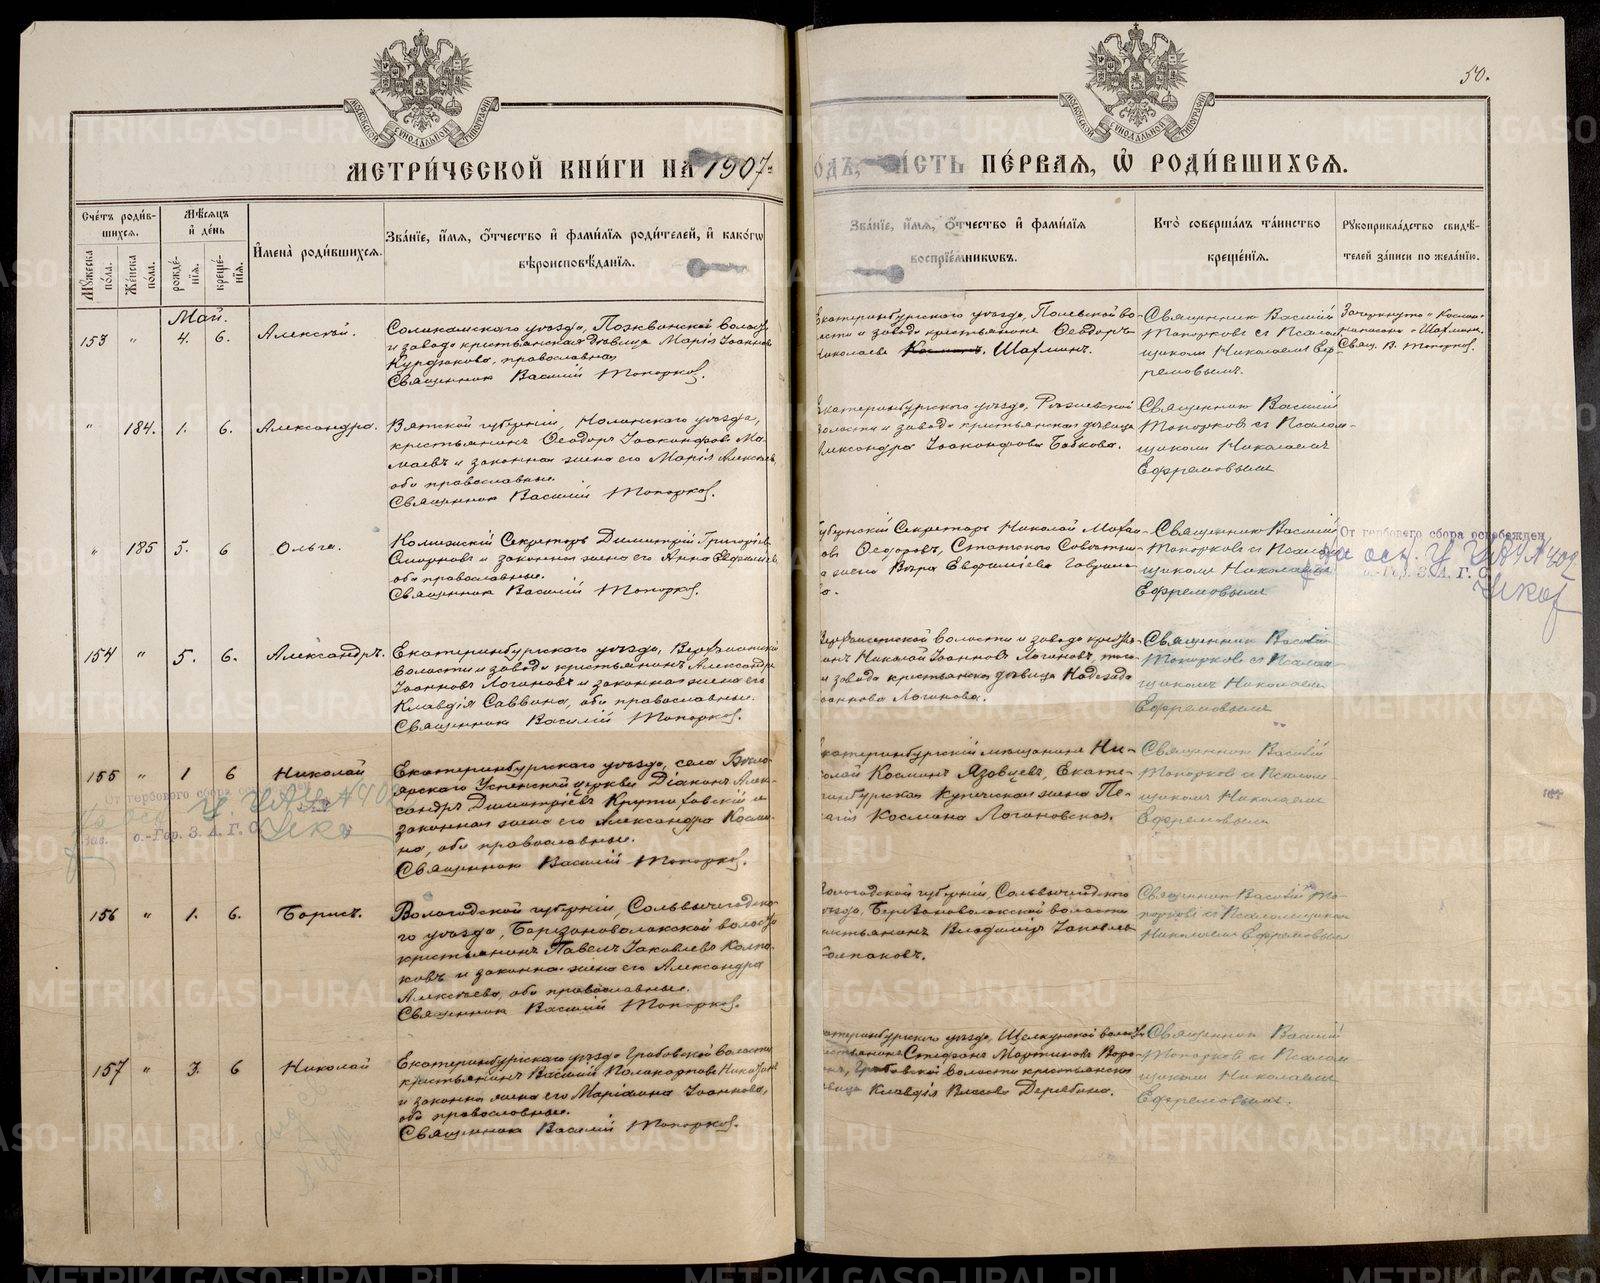 50.
МЕТРИ́ЧЕСКОЙ КНИ́ГИ НА 1907
ОДЪ, ЧА́СТЬ ПЕ́РВАЯ, Ѿ РОДИ́ВШИХСЯ.
Сче́тъ роди́в-
шихся.
Мѣ́сяцъ
и҆ де́нь
И҆мена̀ роди́вшихся.
Зва́нїе, и҆́мя, ѻ҆́тчество и҆ фами́лїя роди́телей, и҆ како́гѡ
вѣроисповѣ́данїя.
Мꙋ́жеска по́ла.
Же́нска по́ла.
рожде́нїя.
креще́нїя.
Зва́нїе, и҆́мя, ѻ҆́тчество и҆ фами́лїя
воспрїе́мникѡвъ.
Кто̀ соверша́лъ та́инство
креще́нїя.
Рꙋкоприкла́дство свидѣ́-
телей за́писи по жела́нїю.
Май.
153 " 4. 6. Алексѣй.
Соликамскаго уѣзда, Пожвинской волос.
и завода крестьянская дѣвица Марія Іоаннов
Курдюкова, православная
Священникъ Василій Топорковъ.
Екатеринбургскаго уѣзда, Полевской во-
лости и завода крестьянинъ Ѳеодоръ
Николаевъ Шахминъ.
Священникъ Василій
Топорковъ съ Псалом
щикомъ Николаемъ Еф
ремовымъ.
Зачеркнуто "Косми
написано "Шахминъ.
Свящ. В. Топорковъ.
" 184. 1. 6. Александра.
Вятской губерніи, Нолинскаго уѣзда,
крестьянинъ Ѳеодоръ Іоакинфовъ Ма-
маевъ и законная жена его Марія Алексѣев
оба православные.
Священникъ Василій Топорковъ.
Екатеринбургскаго уѣзда,
волости и завода крестьянская дѣвица
Александра Іоакинфова Бабкова.
Священникъ Василій
Топорковъ съ Псалом-
щикомъ Николаемъ
Ефремовымъ
" 185 5. 6 Ольга.
Коллежскій Секретарь Димитрій Григорьев
Смирновъ и законная жена его Анна Евфиміев
оба православные.
Священникъ Василій Топорковъ.
Губернскій Секретарь Николай Михай
овъ Ѳедоровъ, Статскаго Совѣтни
а жена Вѣра Евфиміева Гаврило
Священникъ Василій
Топорковъ съ Псалом
щикомъ Николаемъ
Ефремовымъ
От гербового сбора освобожден
о.-Гор. З. А. Г. С.
154 " 5. 6. Александръ.
Екатеринбургскаго уѣзда, Верхисетской
волости и завода крестьянинъ Александръ
Іоанновъ Логиновъ и законная жена его
Клавдія Саввина, оба православные.
Священникъ Василій Топорковъ.
Верхисетской волости и завода крестья-
нинъ Николай Іоанновъ Логиновъ, того
и завода крестьянская дѣвица Надежда
оаннова Логинова.
Священникъ Василій
Топорковъ съ Псалом
щикомъ Николаемъ
Ефремовымъ
155 " 1 6 Николай
Екатеринбургскаго уѣзда, села Бѣло-
ярскаго Успенской церкви Діаконъ Алек-
сандръ Димитріевъ Крутиховскій и
законная жена его Александра Косми-
на, оба православные.
Священникъ Василій Топорковъ.
Екатеринбургскій мѣщанинъ Ни-
колай Косминъ Язовцевъ, Екате-
ринбургская купеческая жена Пе-
лагія Космина Логиновская.
Священникъ Василій
Топорковъ съ Псалом-
щикомъ Николаемъ
Ефремовымъ
От гербового сбора
Зав. о.-Гор. З. А. Г. С.
156 " 1. 6. Борисъ.
Вологодской губерніи, Сольвычегодска-
го уѣзда, Березонаволоцкой волости
крестьянинъ Павелъ Іаковлевъ Колпа-
ковъ и законная жена его Александра
Алексѣева, оба православные.
Священникъ Василій Топорковъ.
Вологодской губерніи, Сольвычегодскаго
уѣзда, Березонаволоцкой волости
крестьянинъ Владиміръ Іаковлевъ
Колпаковъ.
Священникъ Василій То-
порковъ съ Псаломщикомъ
Николаемъ Ефремовымъ
157 " 3. 6 Николай
Екатеринбургскаго уѣзда Грабовской волости
крестьянинъ Василій Поликарповъ
и законная жена его Маріанна Іоаннова,
оба православные.
Священникъ Василій Топорковъ.
катеринбургскаго уѣзда, Щелкунской волости
крестьянинъ Стефанъ Мартиновъ Воро-
нъ, Грабовской волости крестьянская
дѣвица Клавдія Дерябина.
Священникъ Василій
Топорковъ съ Псалом
щикомъ Николаемъ
Ефремовымъ.
METRIKI.GASO-URAL.RU